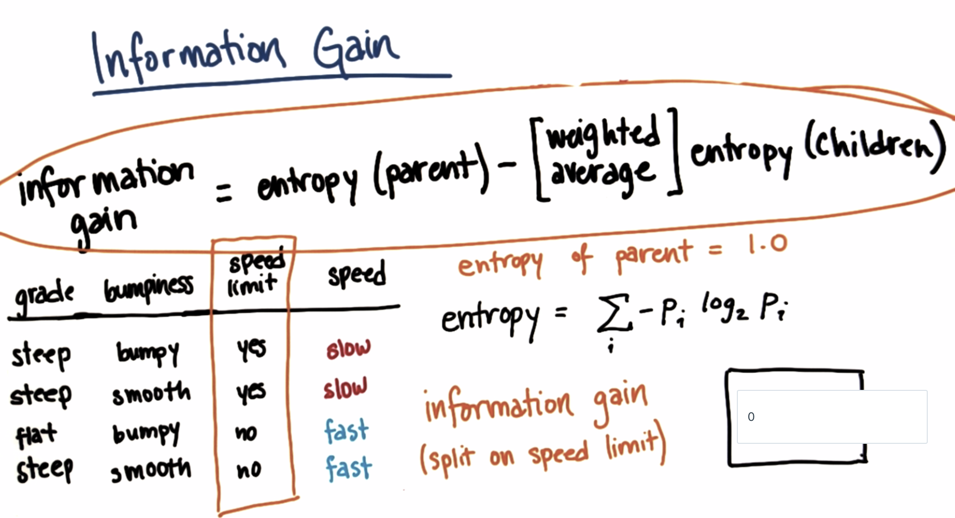 Information Gain
information gain = entropy (parent) - [weighted average] entropy (children)
grade bumpiness speed limit speed
steep bumpy yes slow
steep smooth yes slow
flat bumpy no fast
steep smooth no fast
entropy of parent = 1.0
entropy = ∑ i - Pi log2 Pi
information gain
(split on speed limit)
0